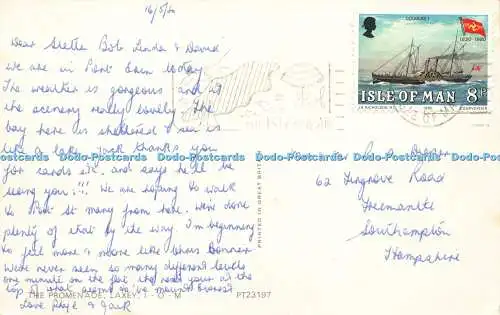 16/5/80
Dear Stella Bob Linda & David,
we are in Port Erin today
The weather is gorgeous and
the scenery really lovely. The
bay here is sheltered & sea is
like a lake, Jack thanks you
for cards etc. and says he'll be
seeing you!!! We are hoping to walk
to Port St Mary from here. We've done
plenty of that by the way. I'm beginning
to feel more & more like Chris Bonner
We've never seen so many different levels
one minute on the flat the next your at the
top of what seems to be mount Everest
Love & Jack
THE PROMENADE, LAXEY, I - O - M
PT23197
PRINTED IN GREAT BRITAIN
DOUGLAS I
1830-1980
ISLE OF MAN 8P
62 Road
Southampton
Hampshire
Dodo-Postcards Dodo-Postcards Dodo-Postcards Dodo-Postcards Dodo-Postcards